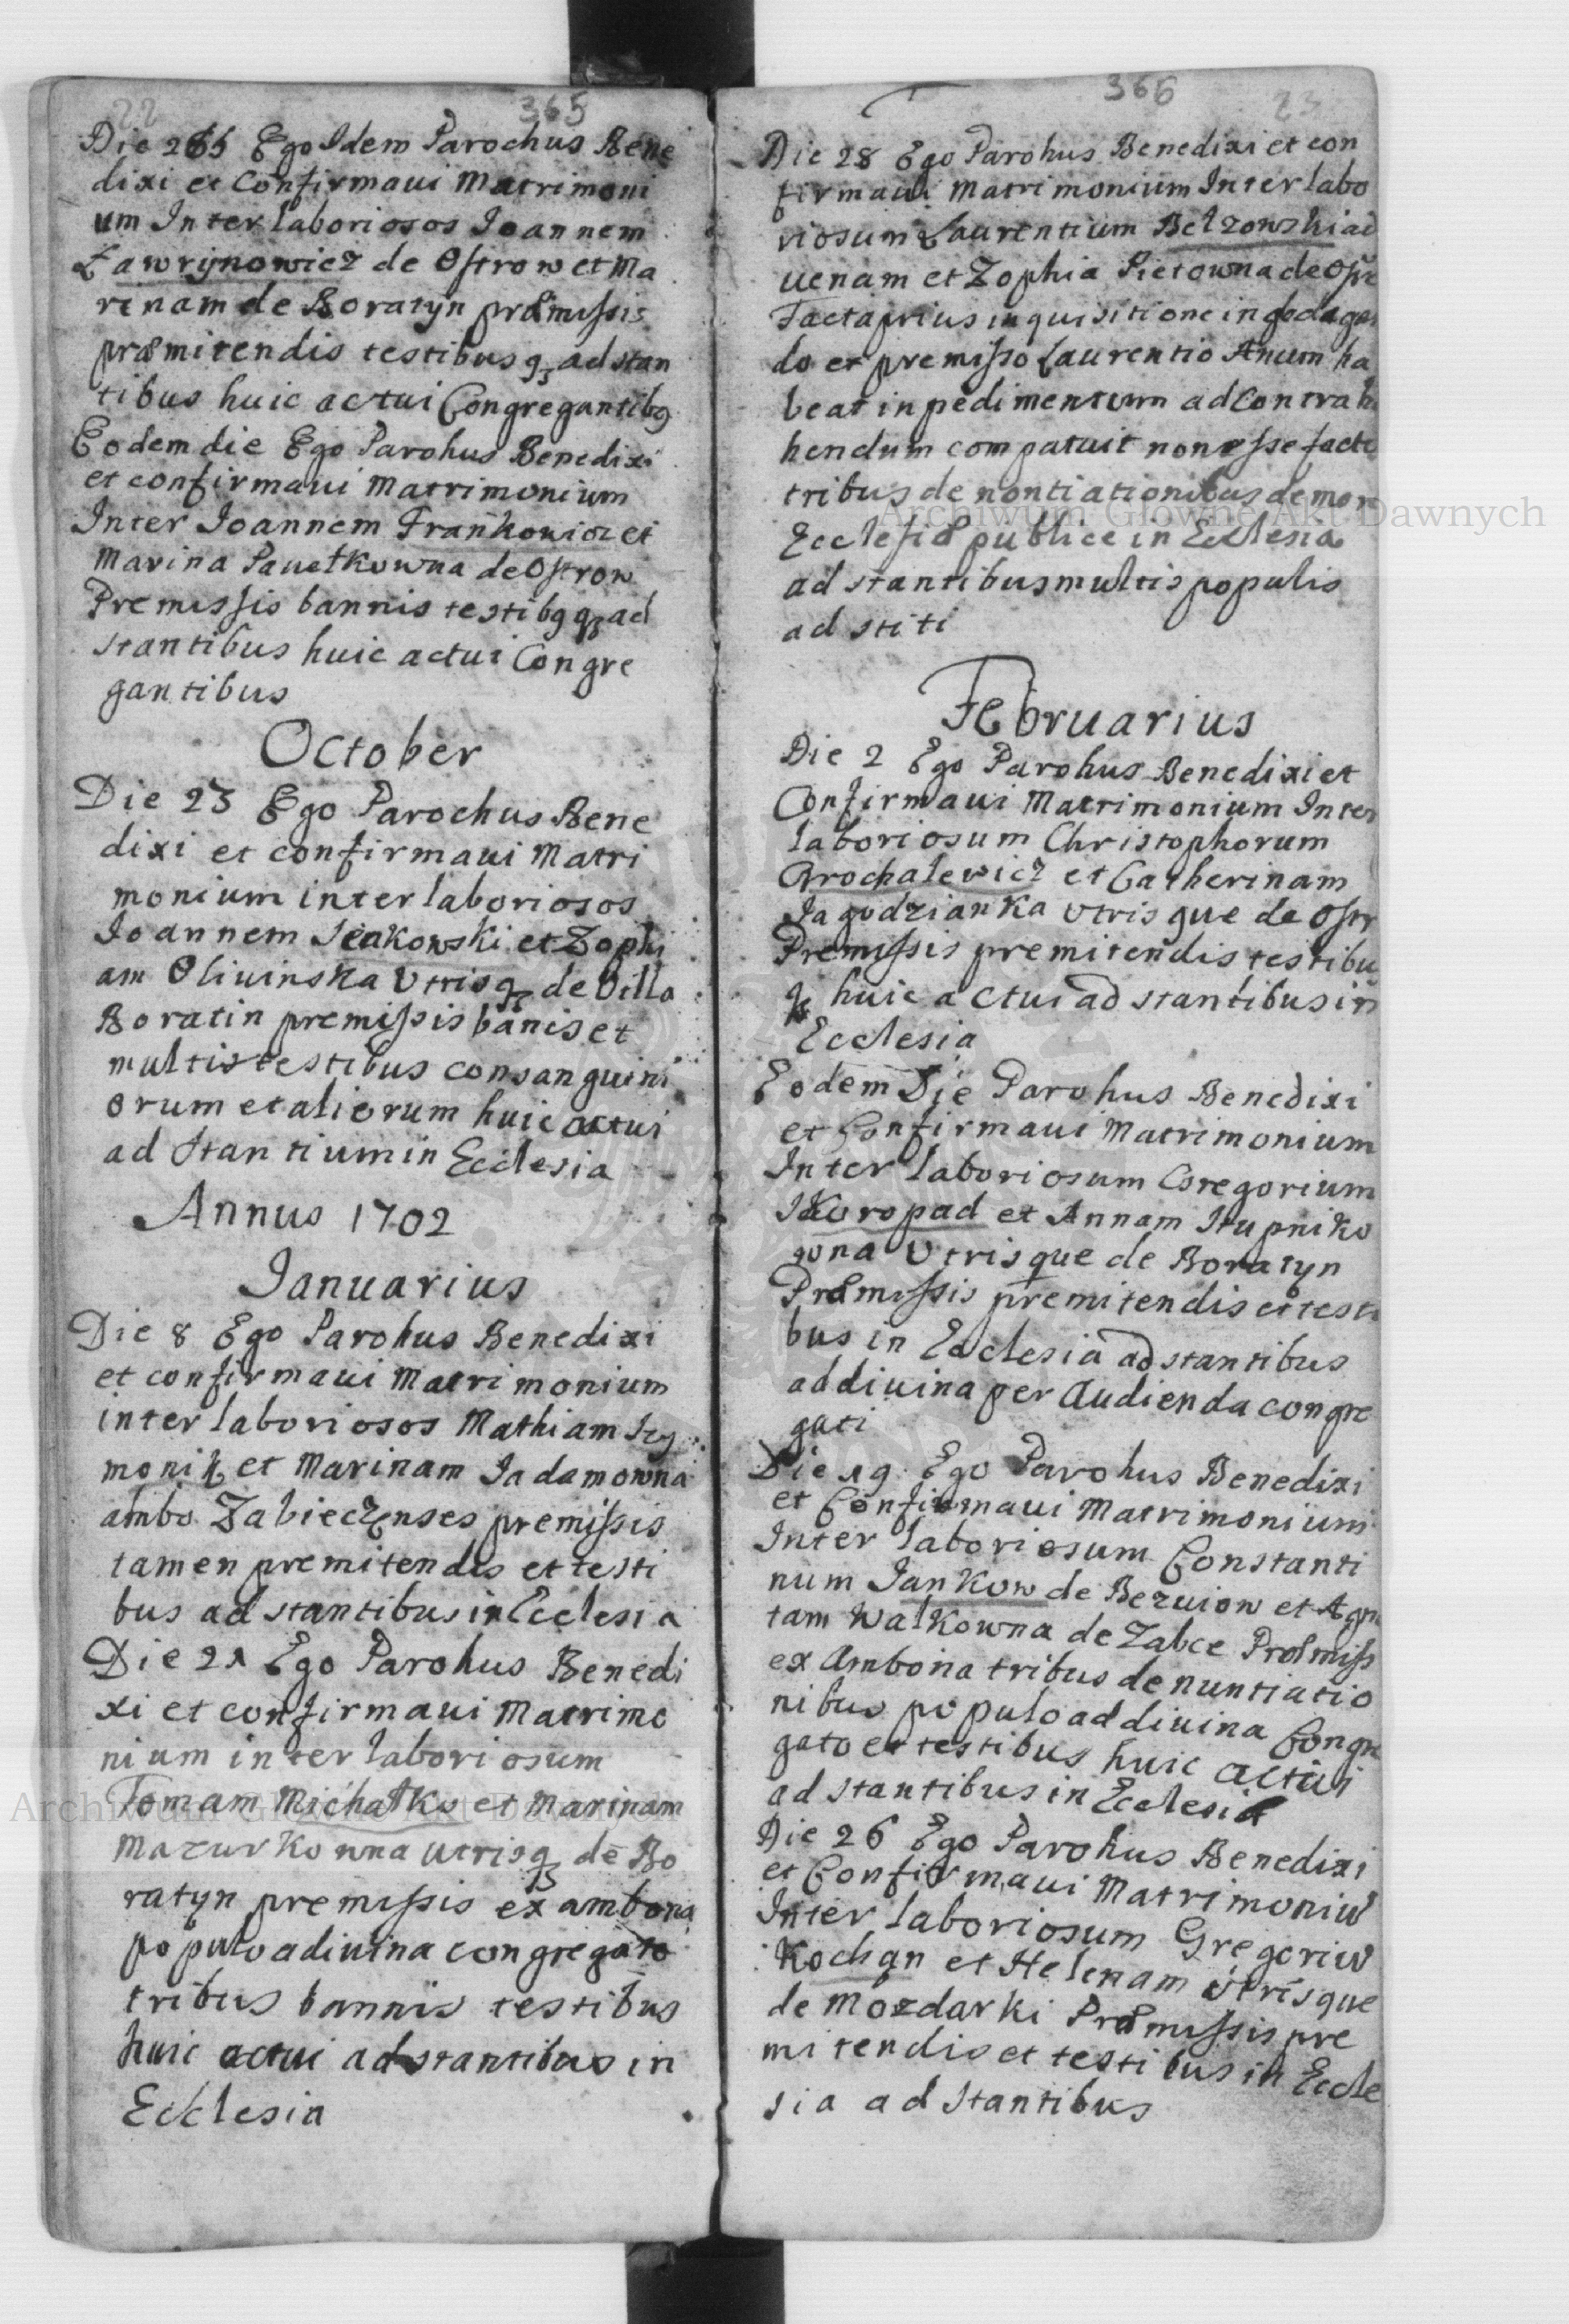 22 365
Die 265 Ego Idem Parochus Bene
dixi et Confirmaui Matrimoni
um Inter laboriosos Ioannem
Ławrynowicz de Ostrow et Ma
rinam de Boratyn præmissis
præmitendis testibus qȝ ad stan
tibus huic actui Congregantibꝯ
Eodem die Ego Parohus Benedixi
et confirmaui Matrimonium
Inter Ioannem Frankowicz et
Marina Pawełkowna de Ostrow
Premissis bannis testibꝯ qȝ ad
stantibus huic actui Congre
gantibus
October
Die 23 Ego Parochus Bene
dixi et confirmaui Matri
monium inter laboriosos
Ioannem Seakowski et Zophi
am Oliuinska Vtrisqȝ de Villa
Boratin premissis banis et
multis testibus consanguini
orum et aliorum huic actui
ad stantium in Ecclesia
Annus 1702
Ianuarius
Die 8 Ego Parohus Benedixi
et confirmaui Matrimonium
inter laboriosos Mathiam Szy
monik et Marinam Iadamowna
ambo Zabieczenses premissis
tamen premitendis et testi
bus ad stantibus in Ecclesia
Die 21 Ego Parohus Benedi
xi et confirmaui Matrimo
nium inter laboriosum
Tomam Michałko et Marinam
Mazurkowna utrisqȝ de Bo
ratyn premissis ex ambona
populo adiuina congregato
tribus bannis testibus
huic actui adstantibus in
Ecclesia
366 23
Die 28 Ego Parohus Benedixi et con
firmaui Matrimonium Inter labo
riosum Laurentium Bełzowski ad
uenam et Zophia Pietowna de Ostr
Facta prius inquisitione in
do et premisso Laurentio Anum ha
beat inpedimentum ad Contrah
hendum compatuit non esse facto
tribus denontiationibus de more
Ecclesiæ publice in Ecclesia
ad stantibus multis populis
ad stiti
Februarius
Die 2 Ego Parohus Benedixi et
Confirmaui Matrimonium Inter
laboriosum Christophorum
Grochalewicz et Catherinam
Iagodzianka Vtrisque de Ostr
Premissis premitendis testibu
qȝ huic actui ad stantibus in
Ecclesia
Eodem Die Parohus Benedixi
et Confirmaui Matrimonium
Inter laboriosum Gregorium
Skoropad et Annam Stupniko
wna Vtrisque de Boratyn
Præmissis premitendis et testi
bus in Ecclesia ad stantibus
ad diuina per Audienda congre
gati
Die 19 Ego Parohus Benedixi
et Confirmaui Matrimonium
Inter laboriosum Constanti
num Iankow de Bezuiow et Agn
tam Walkowna de Zabce Præmiss
ex Ambona tribus denuntiatio
nibus populo ad diuina Congre
gato et testibus huic actui
ad stantibus in Ecclesia
Die 26 Ego Parohus Benedixi
et Confirmaui Matrimoniū
Inter laboriosum Gregoriū
Kochan et Helenam Vtrisque
de Mozdarki Præmissis pre
mitendis et testibus in Eccle
sia ad stantibus
Archiwum Główne Akt Dawnych
Archiwum Główne Akt Dawnych